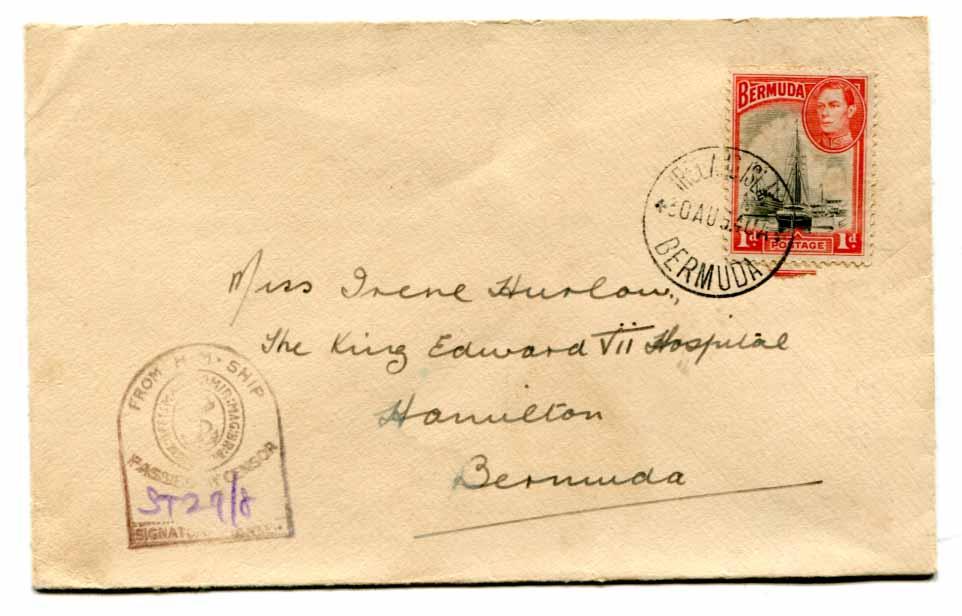 BERMUDA
1d POSTAGE 1d
IRELAND ISLAND
*30 AUG 40
BERMUDA
Miss Irene Hurlow,
The King Edward VII Hospital
Hamilton
Bermuda
FROM H.M. SHIP
PASSED BY CENSOR
ST 29/8